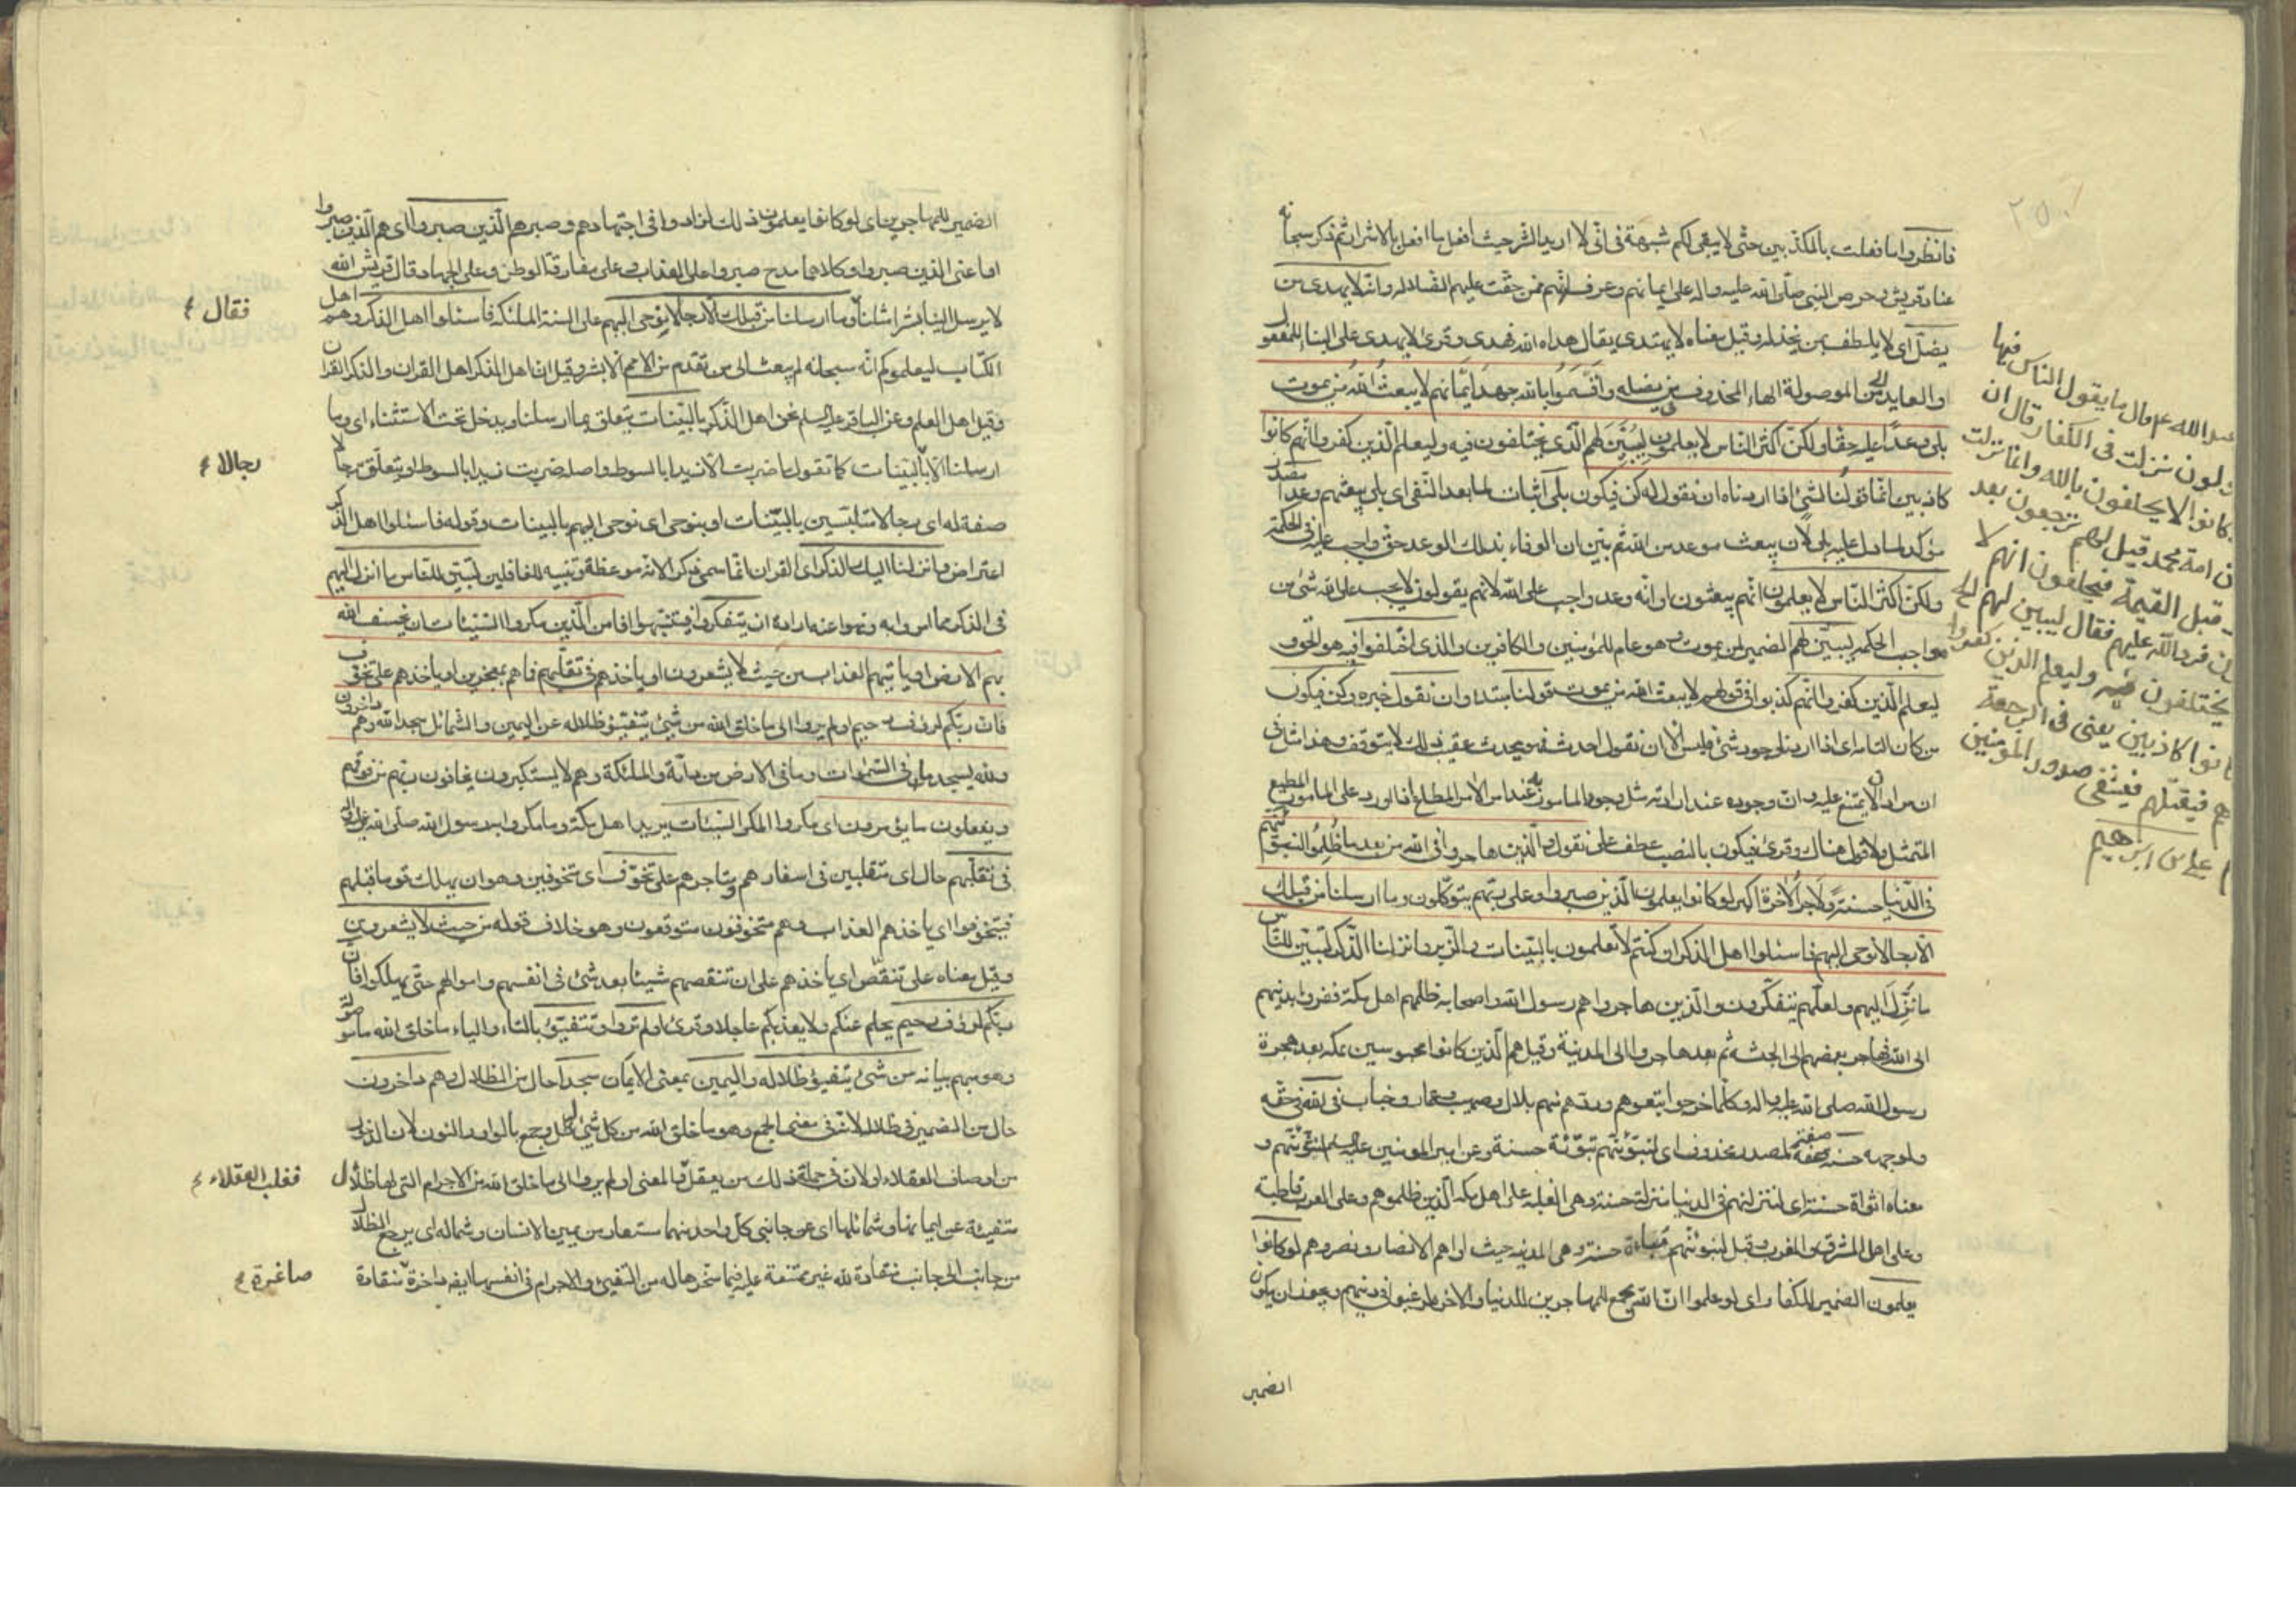 فانظروا ما فعلت بالمكذبين حتى لا يبقى لكم شبهة فى انى لا اريد الشر حيث افعل ما افعل بالاشرار ثم ذكر سبحانه
عناد قريش وحرص النبى صلى الله عليه واله على ايمانهم وعرف انهم ممن حقت عليهم الضلالة وانه لا يهدى من
يضل اى لا يلطف بمن يخذله وقيل معناه لا يهتدى يقال هداه الله فهدى وقرئ لا يهدى على البناء للمفعول
والعايد الى من الموصولة الهاء المحذوف من يضله واقسموا بالله جهد ايمانهم لا يبعث الله من يموت
بلى وعدا عليه حقا ولكن اكثر الناس لا يعلمون ليبين لهم الذى يختلفون فيه وليعلم الذين كفروا انهم كانوا
كاذبين انما قولنا لشئ اذا اردناه ان نقول له كن فيكون بلى اثبات لما بعد النفى اى بلى يبعثهم وعدا مصدر
مؤكد لما دل عليه بلى لان يبعث موعد من الله ثم بين ان الوفاء بذلك الموعد حق واجب عليه فى الحكمة
ولكن اكثر الناس لا يعلمون انهم يبعثون او انه وعد واجب على الله لانهم يقولون لا يجب على الله شئ من
مواجب الحكمة ليبين لهم الضمير لمن يموت وهو عام للمؤمنين والكافرين والذى اختلفوا فيه هو الحق
ليعلم الذين كفروا انهم كذبوا فى قولهم لا يبعث الله من يموت قولنا مبتدء وان نقول خبره وكن فيكون
من كان التامة اى اذا اردنا وجود شئ فليس الا ان نقول احدث فهو يحدث عقيب ذلك لا يتوقف وهذا مثل فى
ان مرادا لا يمتنع عليه وان وجوده عند ارادته مثل وجود المامور به عند امر الامر المطاع اذا ورد على المامور المطيع
الممتثل ولا قول هناك وقرئ فيكون بالنصب عطف على نقول والذين هاجروا فى الله من بعد ما ظلموا لنبوئنهم
فى الدنيا حسنة ولاجر الاخرة اكبر لو كانوا يعلمون الذين صبروا وعلى ربهم يتوكلون وما ارسلنا من قبلك
الا رجالا نوحى اليهم فاسئلوا اهل الذكر ان كنتم لا تعلمون بالبينات والزبر وانزلنا اليك الذكر لتبين للناس
ما نزل اليهم ولعلهم يتفكرون والذين هاجروا هم رسول الله واصحابه ظلمهم اهل مكة ففروا بدينهم
الى الله فهاجر بعضهم الى الحبشة ثم بعد هاجروا الى المدينة وقيل هم الذين كانوا محبوسين بمكة بعد هجرة
رسول الله صلى الله عليه واله وكلما خرجوا اتبعوهم وردوهم منهم بلال وصهيب وعمار وخباب فى الله فى حقه
ولوجهه حسنة صفة لمصدر محذوف اى لنبوئنهم تبوئة حسنة وعن امير المؤمنين عليه السلم لنثوينهم و
معناه اثواءة حسنة اى لننزلنهم فى الدنيا منزلة حسنة وهى الغلبة على اهل مكة الذين ظلموهم وعلى العرب قاطبة
وعلى اهل المشرق والمغرب وقيل لنبوئنهم مباءة حسنة وهى المدينة حيث اواهم الانصار ونصروهم لو كانوا
يعلمون الضمير للكفار اى لو علموا ان الله يجمع للمهاجرين الدنيا والاخرة لرغبوا فى دينهم ويجوز ان يكون
الضمير
عبد الله عم قال ما يقول الناس فيها
يقولون نزلت فى الكفار قال ان
كانوا لا يحلفون بالله وانما نزلت
فى امة محمد قيل لهم ترجعون بعد
قبل القيمة فيحلفون انهم لا
فرد الله عليهم فقال ليبين لهم الذى
يختلفون فيه وليعلم الذين كفروا
كانوا كاذبين يعنى فى الرجعة
فيقتلهم فيشفى صدور المؤمنين
على بن ابرهيم
الضمير للمهاجرين اى لو كانوا يعلمون ذلك لزادوا فى اجتهادهم وصبرهم الذين صبروا اى هم الذين صبروا
او اعنى الذين صبروا وكلاهما مدح صبروا على العذاب وعلى مفارقة الوطن وعلى الجهاد وقال قريش الله
لا يرسل الينا بشرا مثلنا وما ارسلنا من قبلك الا رجالا يوحى اليهم على السنة الملئكة فاسئلوا اهل الذكر وهم اهل
فقال
الكتاب ليعلموكم انه سبحانه لم يبعث الى من تقدم من الامم الا بشر وقيل ان اهل الذكر اهل القران والذكر القران
وقيل اهل العلم وعن الباقر عليه السلم نحن اهل الذكر بالبينات يتعلق بما ارسلنا ويدخل تحت الاستثناء اى وما
ارسلنا الا بالبينات كما تقول ما ضربت الا زيدا بالسوط واصله ضربت زيدا بالسوط او يتعلق برجالا
رجالا
صفة له اى رجالا متلبسين بالبينات او بنوحى اى نوحى اليهم بالبينات وقوله فاسئلوا اهل الذكر
اعتراض وانزلنا اليك الذكر اى القران انما سمى ذكرا لانه موعظة وتنبيه للغافلين لتبين للناس ما انزل اليهم
فى الذكر مما امروا به ونهوا عنه وارادة ان يتفكروا فيتنبهوا افامن الذين مكروا السيئات ان يخسف الله
بهم الارض او ياتيهم العذاب من حيث لا يشعرون او ياخذهم فى تقلبهم فما هم بمعجزين او ياخذهم على تخوف
فان ربكم لرؤف رحيم اولم يروا الى ما خلق الله من شئ يتفيؤ ظلاله عن اليمين والشمائل سجدا لله وهم داخرون
ولله يسجد ما فى السموات وما فى الارض من دابة والملئكة وهم لا يستكبرون يخافون ربهم من فوقهم
ويفعلون ما يؤمرون اى مكروا المكرات السيئات يريد اهل مكة وما مكروا برسول الله صلى الله عليه واله
فى تقلبهم حال اى متقلبين فى اسفارهم ومتاجرهم على تخوف اى متخوفين وهو ان يهلك قوما قبلهم
فيتخوفوا اى ياخذهم العذاب وهم متخوفون متوقعون وهو خلاف قوله من حيث لا يشعرون
وقيل معناه على تنقص اى ياخذهم على ان تنقصهم شيئا بعد شئ فى انفسهم واموالهم حتى يهلكوا فان
ربكم لرؤف رحيم يحلم عنكم ولا يعذبكم عاجلا وقرئ اولم تروا وتتفيؤ بالتاء والياء ما خلق الله ما موصولة
وهو مبهم بيانه من شئ يتفيؤ ظلاله واليمين بمعنى الايمان سجدا حال من الظلال وهم داخرون
حال من الضمير فى ظلاله لانه فى معنى الجمع وهو ما خلق الله من كل شئ له ظل وجمع بالواو والنون لان الدخور
من اوصاف العقلاء او لان فى جملة ذلك من يعقل والمعنى اولم يروا الى ما خلق الله من الاجرام التى لها ظلال
فغلب العقلاء
متفيئة عن ايمانها وشمائلها اى عن جانبى كل واحد منهما مستعار من يمين الانسان وشماله اى يرجع الظلال
من جانب الى جانب منقادة لله غير ممتنعة عليه فيما سخرها له من التفيئ والاجرام فى انفسها ايضا داخرة منقادة
صاغرة